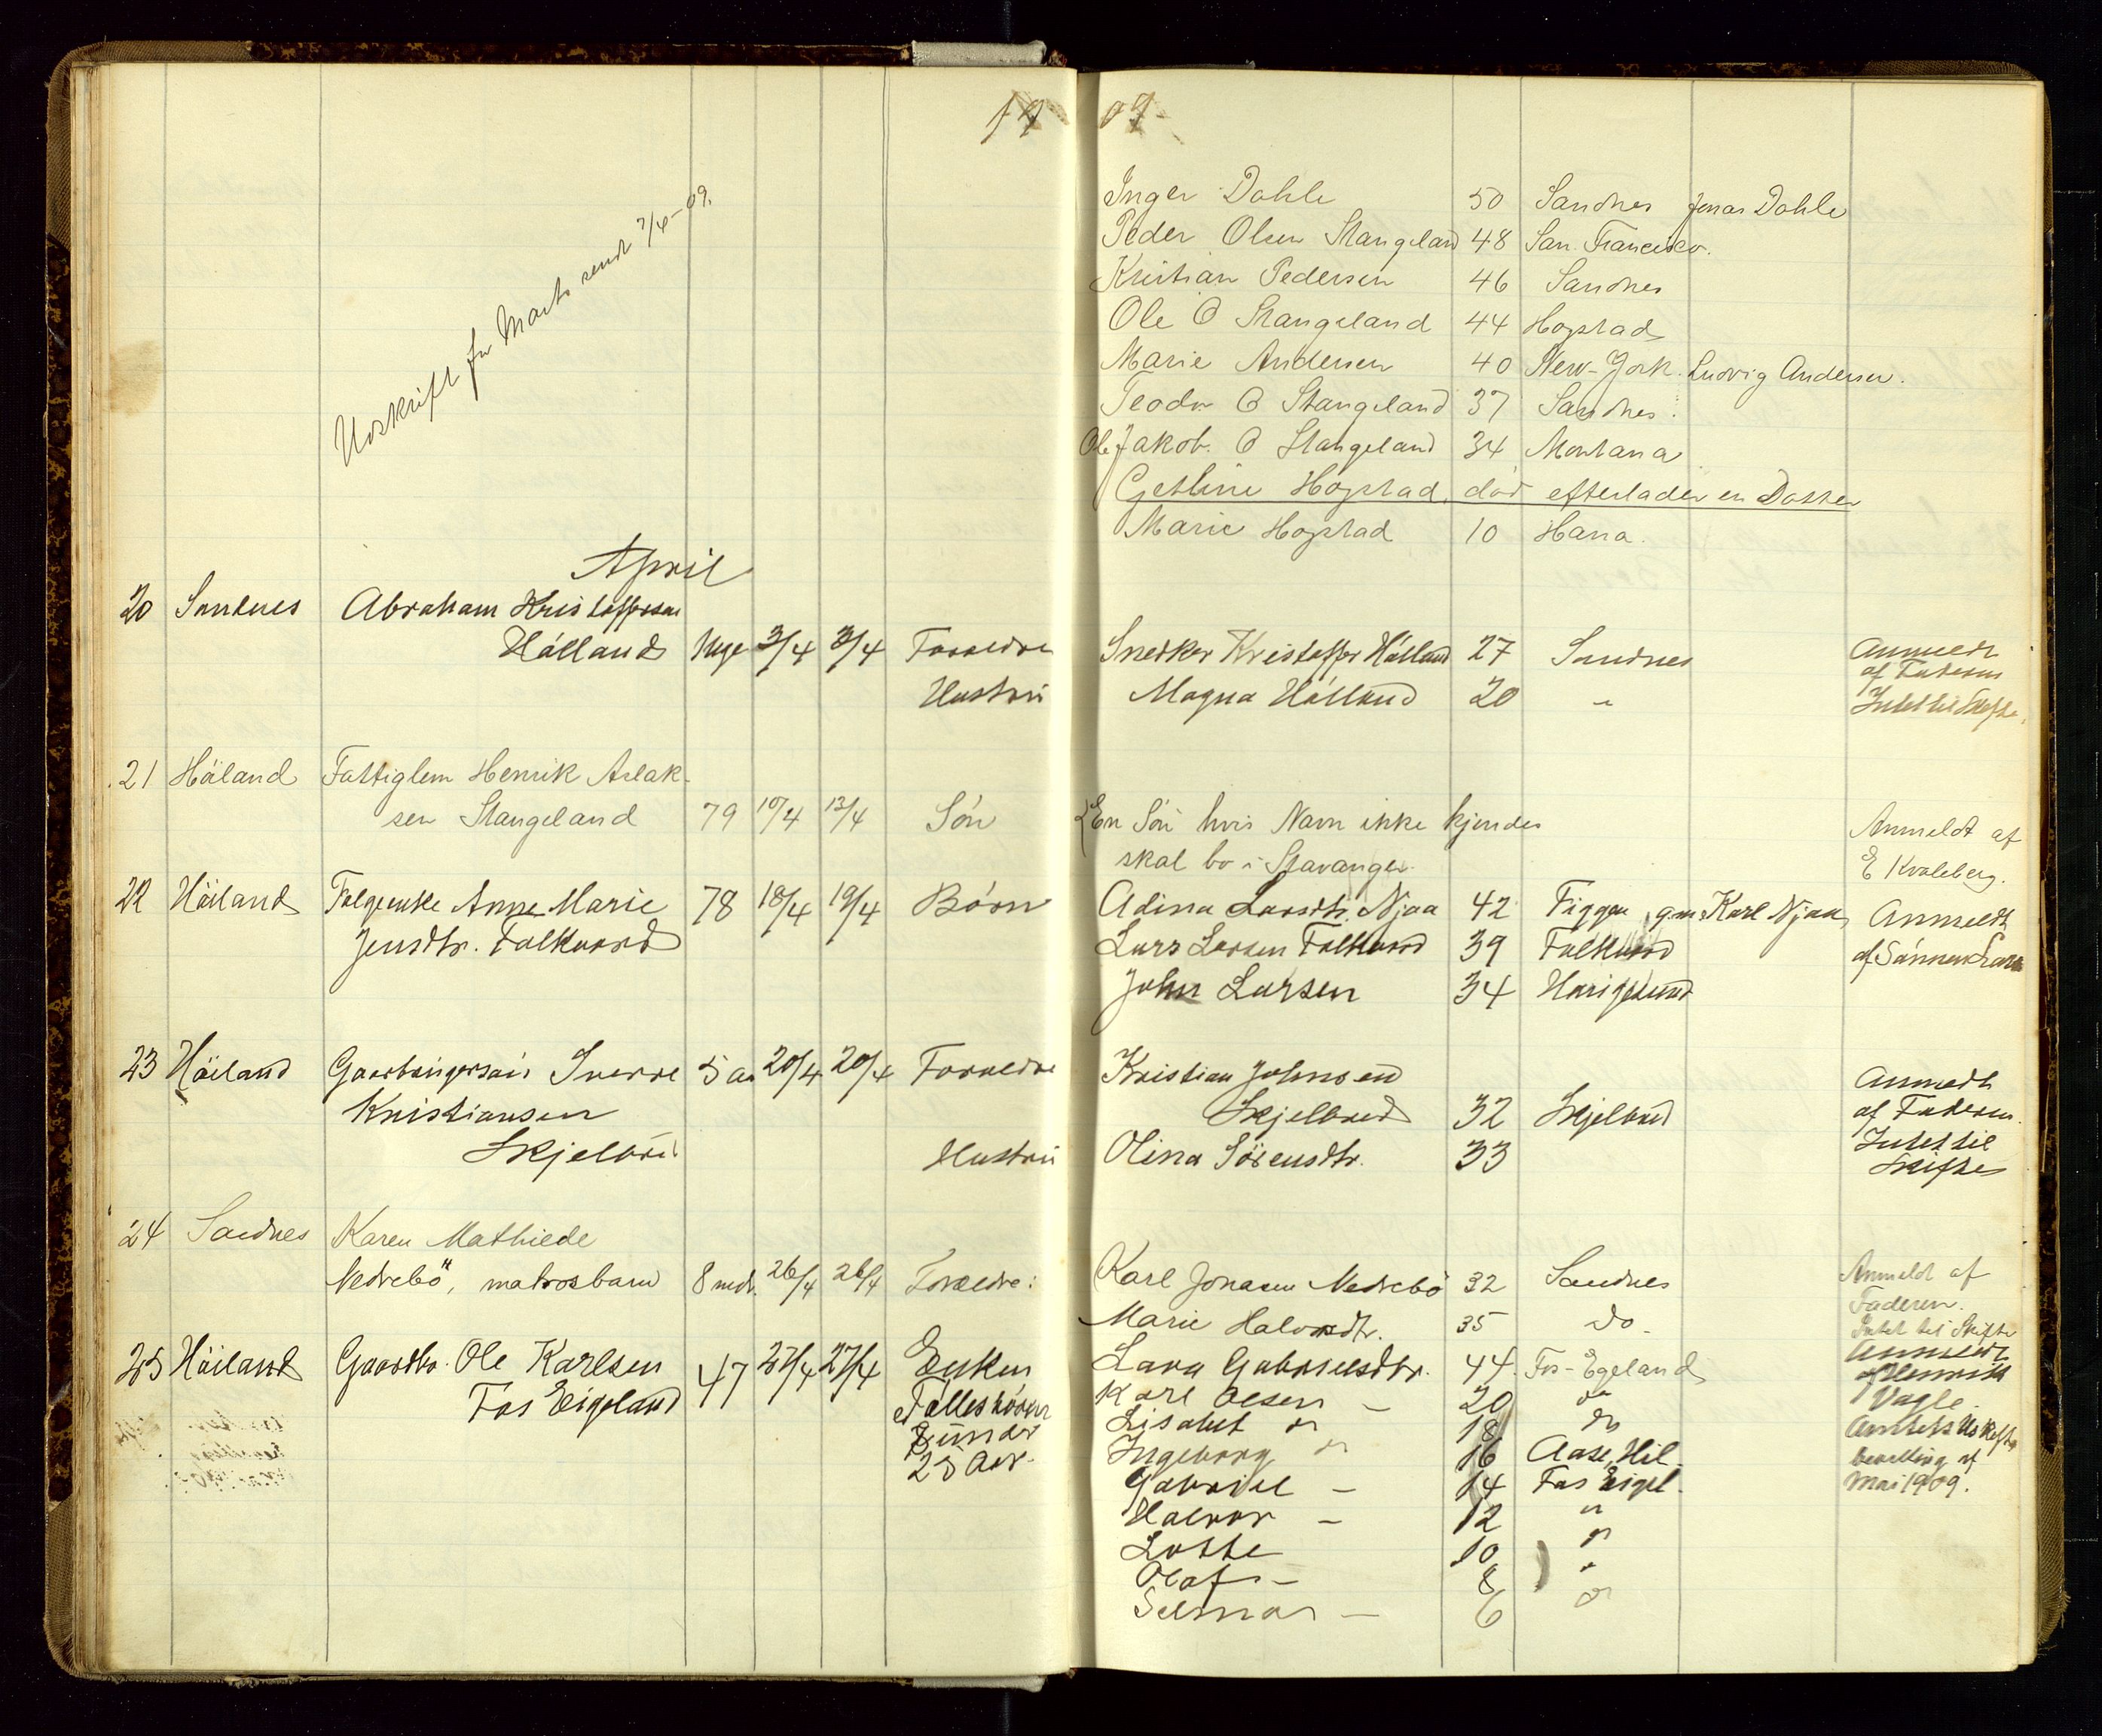 19 09
Udskrift for Marts sendt 7/4-09.
Inger Dahle 50 Sandnes Jonas Dahle
Peder Olsen Stangeland 48 San Francisco.
Kristian Pedersen 46 Sandnes
Ole O Stangeland 44 Hogstad
Marie Andersen 40 New-York. Ludvig Andersen.
Teodor O Stangeland 37 Sandnes.
Ole Jakob O Stangeland 34 Montana
Hogstad død efterlader en Datter
Marie Hogstad 10 Hana.
April
20 Sandnes Abraham Kristoffersen
Hålland 3/4 3/4 Forældre Snedker Kristoffer Hålland 27 Sandnes Anmeldt
af Faderen
Hustru Magna Hålland 20 " Intet til Skifte.
21 Håland Fattiglem Henrik Aslak-
sen Stangeland 79 10/4 13/4 Søn En Søn hvis Navn ikke kjendes Anmeldt af
skal bo i Stavanger. E Kvaleberg.
22 Høiland Folgeenke Anne Marie 78 18/4 19/4 Børn Adina Larsdtr. Njaa 42 Figgen g.m. Karl Njaa Anmeldt
Jensdtr. Folkvord Lars Larsen Folkvord 39 Folkvord af Sønnen Lars
John Larsen 34
23 Høiland Sverre 5 20/4 20/4 Forældre Kristian Johnsen Anmeldt
Kristiansen Skjelbred 32 Skjelbred af Faderen.
Skjelbred Hustru Olina Sørensdtr. 33 Intet til
Skifte
24 Sandnes Karen Mathilde
Nedrebö, matrosbarn 8 mdr. 26/4 26/4 Forældre: Karl Jonasen Nedrebö 32 Sandnes Anmeldt af
Faderen.
Marie Halvorsdtr. 35 do. Intet til Skifte
25 Høiland Gaardbr. Ole Karlsen 47 27/4 27/4 Enken Lava Gabrielsdtr. 44. Fos-Egeland Anmeldt
Fos Eigeland Fællesbørn Karl Olsen — 20 do af Henrik
Vagle.
under Lisabet do 18 do
25 Aar. Ingeborg do 16 Aase, Hil.
bevilling af
Gabriel — 14 Fos Eigel. Mai 1909.
Halvor — 12 "
Lotte 10 "
Olaf — 8 "
Selmar — 6 "